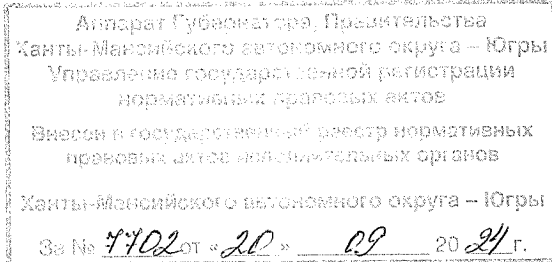 Аппарат Губернатора, Правительства
Ханты-Мансийского автономного округа – Югры
Управление государственной регистрации
нормативных правовых актов
Внесен в государственный реестр нормативных
правовых актов исполнительных органов
Ханты-Мансийского автономного округа – Югры
За № 7702 от «20» 09 2024 г.